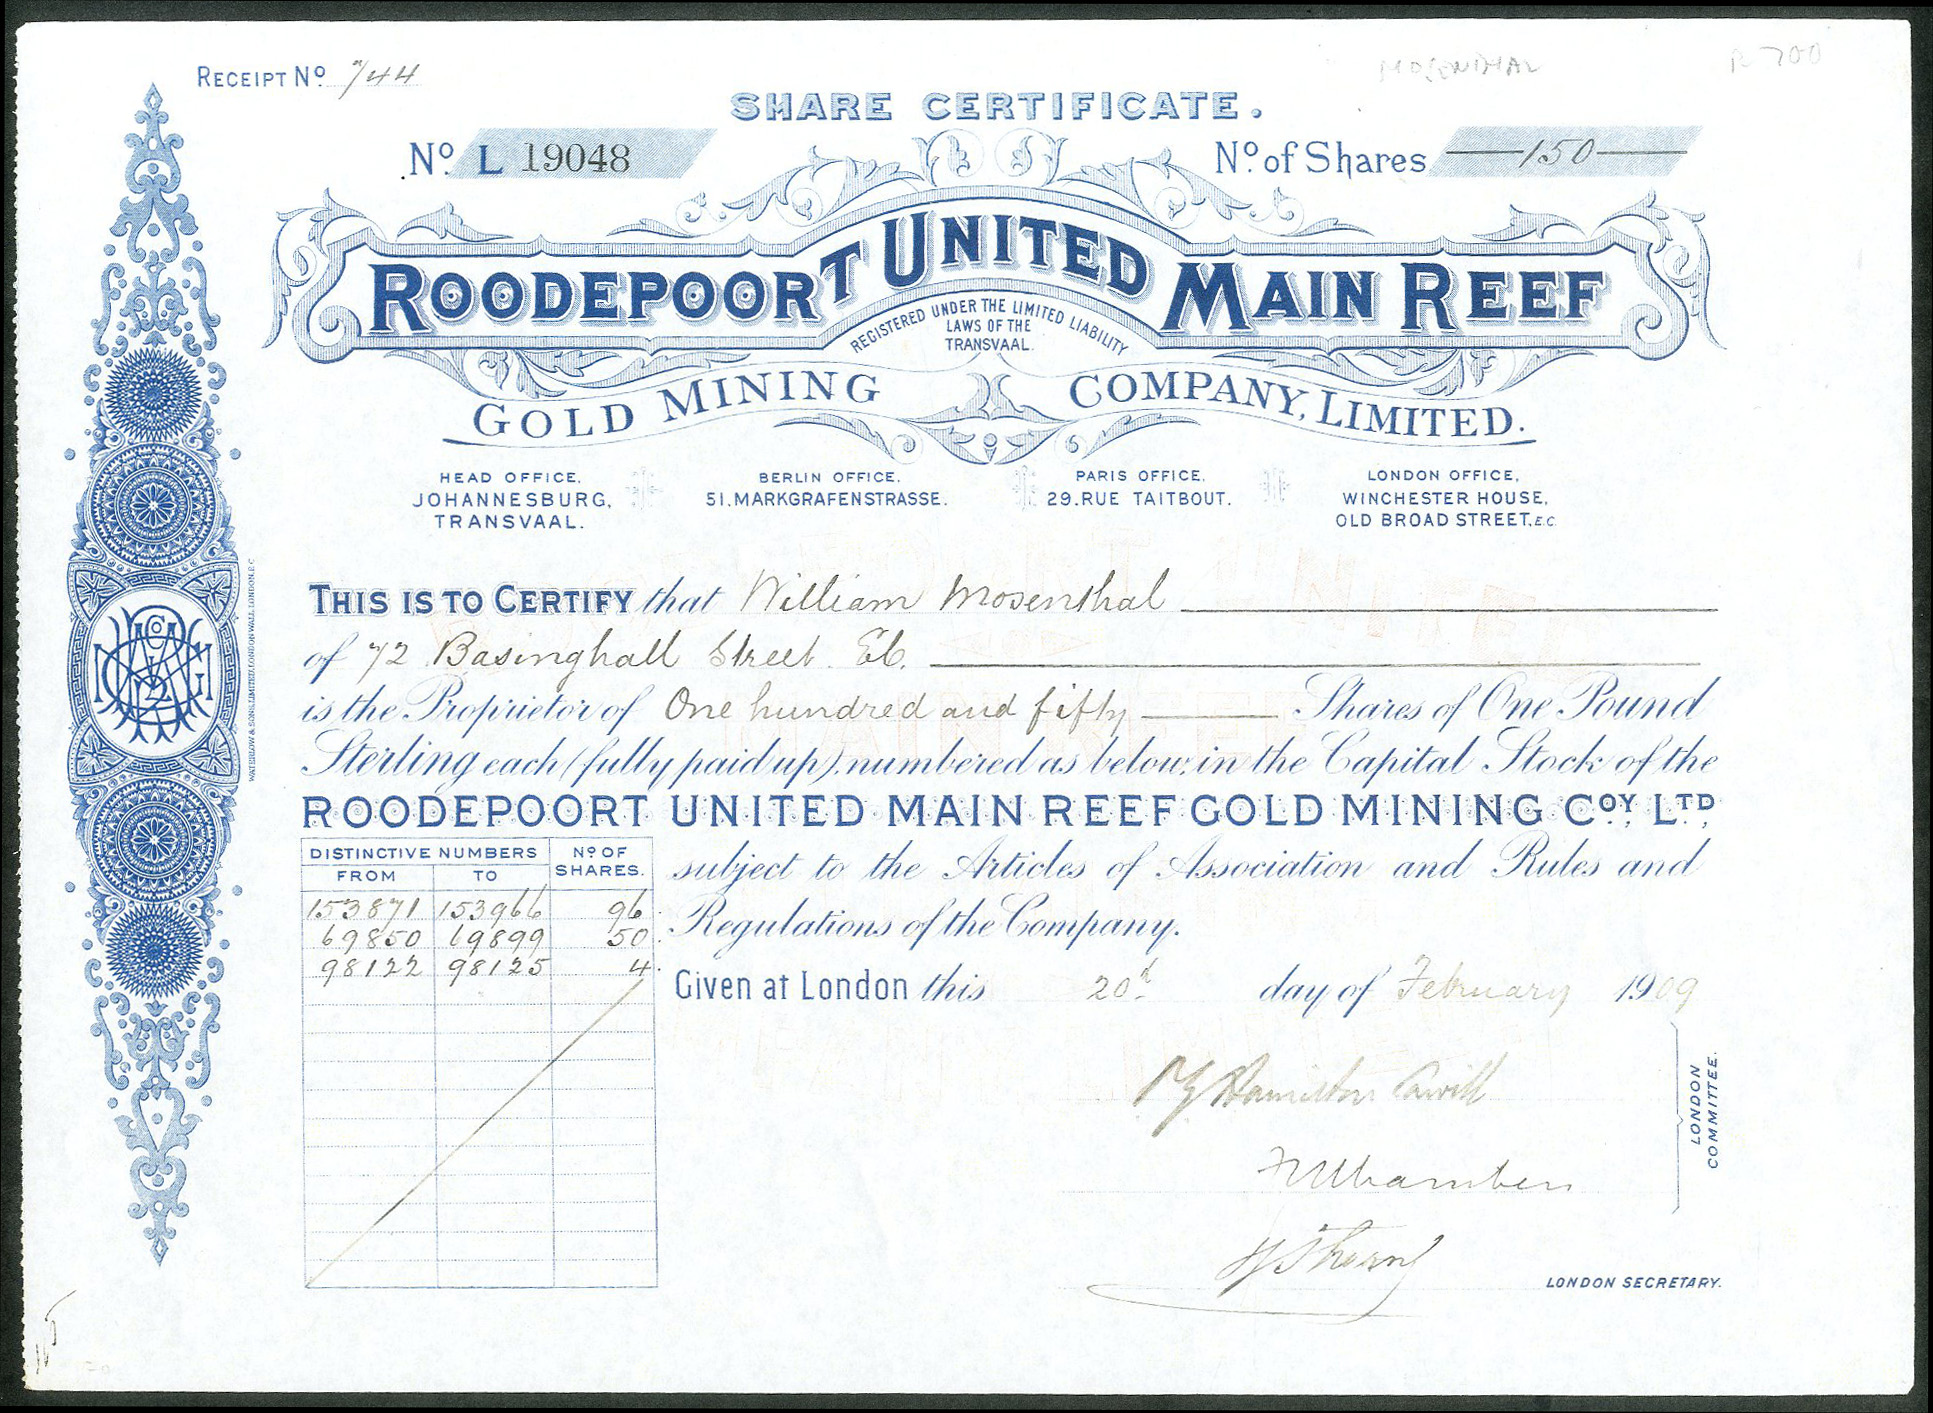 MOSENTHAL R 700
RECEIPT No. 744
SHARE CERTIFICATE.
No. L 19048
No. of Shares 150
ROODEPOORT UNITED MAIN REEF
REGISTERED UNDER THE LIMITED LIABILITY
LAWS OF THE
TRANSVAAL.
GOLD MINING COMPANY, LIMITED.
HEAD OFFICE, BERLIN OFFICE, PARIS OFFICE, LONDON OFFICE,
JOHANNESBURG, 51. MARKGRAFENSTRASSE. 29. RUE TAITBOUT. WINCHESTER HOUSE,
TRANSVAAL. OLD BROAD STREET, E.C.
THIS IS TO CERTIFY that William Mosenthal
of 72 Basinghall Street. EC.
is the Proprietor of One hundred and fifty Shares of One Pound
Sterling each (fully paid up), numbered as below, in the Capital Stock of the
ROODEPOORT UNITED MAIN REEF GOLD MINING COY. LTD.
subject to the Articles of Association and Rules and
Regulations of the Company.
DISTINCTIVE NUMBERS No OF
FROM TO SHARES.
153871 153966 96
69850 69899 50
98122 98125 4
Given at London this 20th day of February 1909
LONDON
COMMITTEE.
LONDON SECRETARY.
WATERLOW & SONS LIMITED, LONDON WALL, LONDON, E.C.